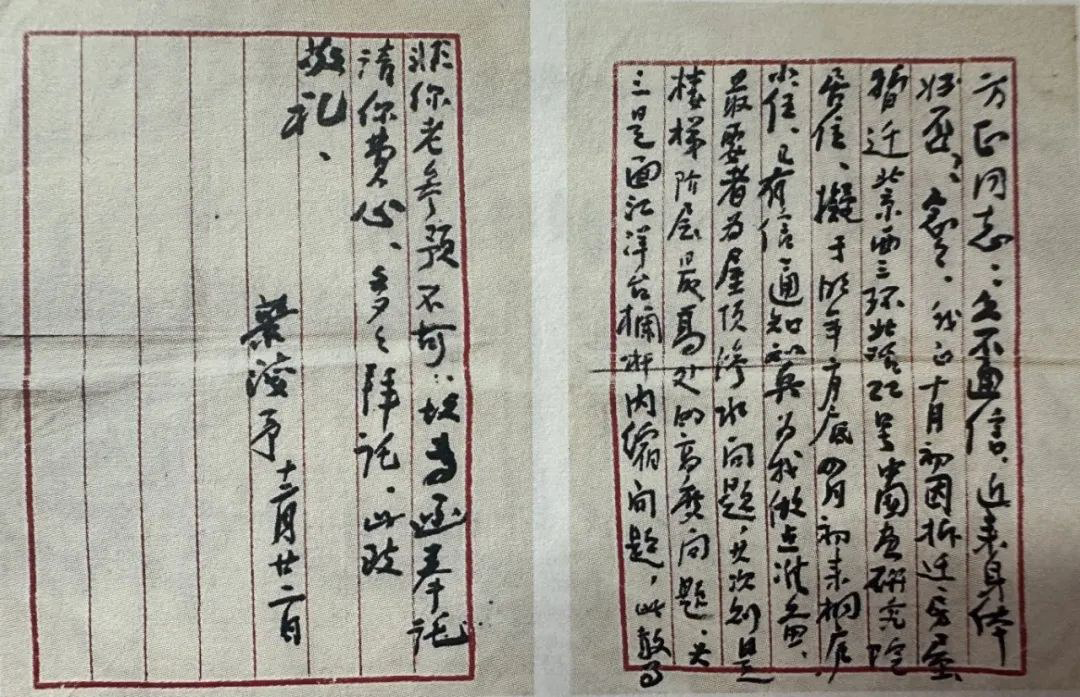 方正同志：久不通信、近来身体
好否？念念、我曰十月初因拆迁房屋
暂迁北京西三环北路54号中国画研究院
居住、拟于明年三月底四月初来桐庐
小住、已有信通知和兵为我做点准备、
最要者为屋顶渗水问题，其次则是
楼梯阶层最高处的高矮问题、其
三是面江洋台栏杆内缩问题，此数事
非你老参预不可；故专函奉托
请你费心、多多拜托、此致
敬礼、
叶浅予 十二月廿二日